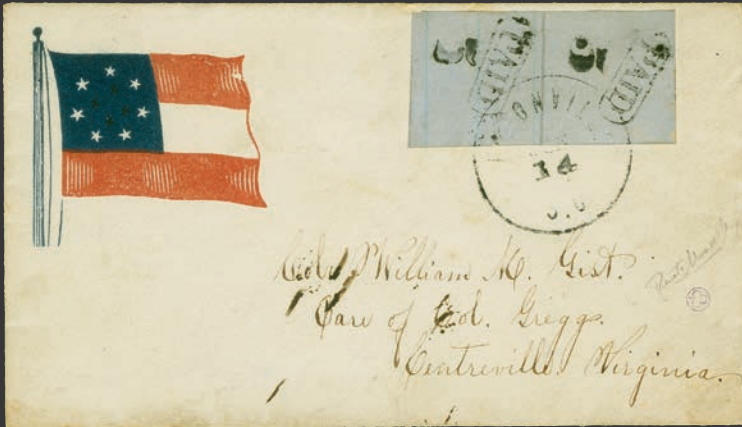 5 PAID 5 PAID
14
Wm. William M. Gist.
Care of Col. Gregg.
Centreville. Virginia.